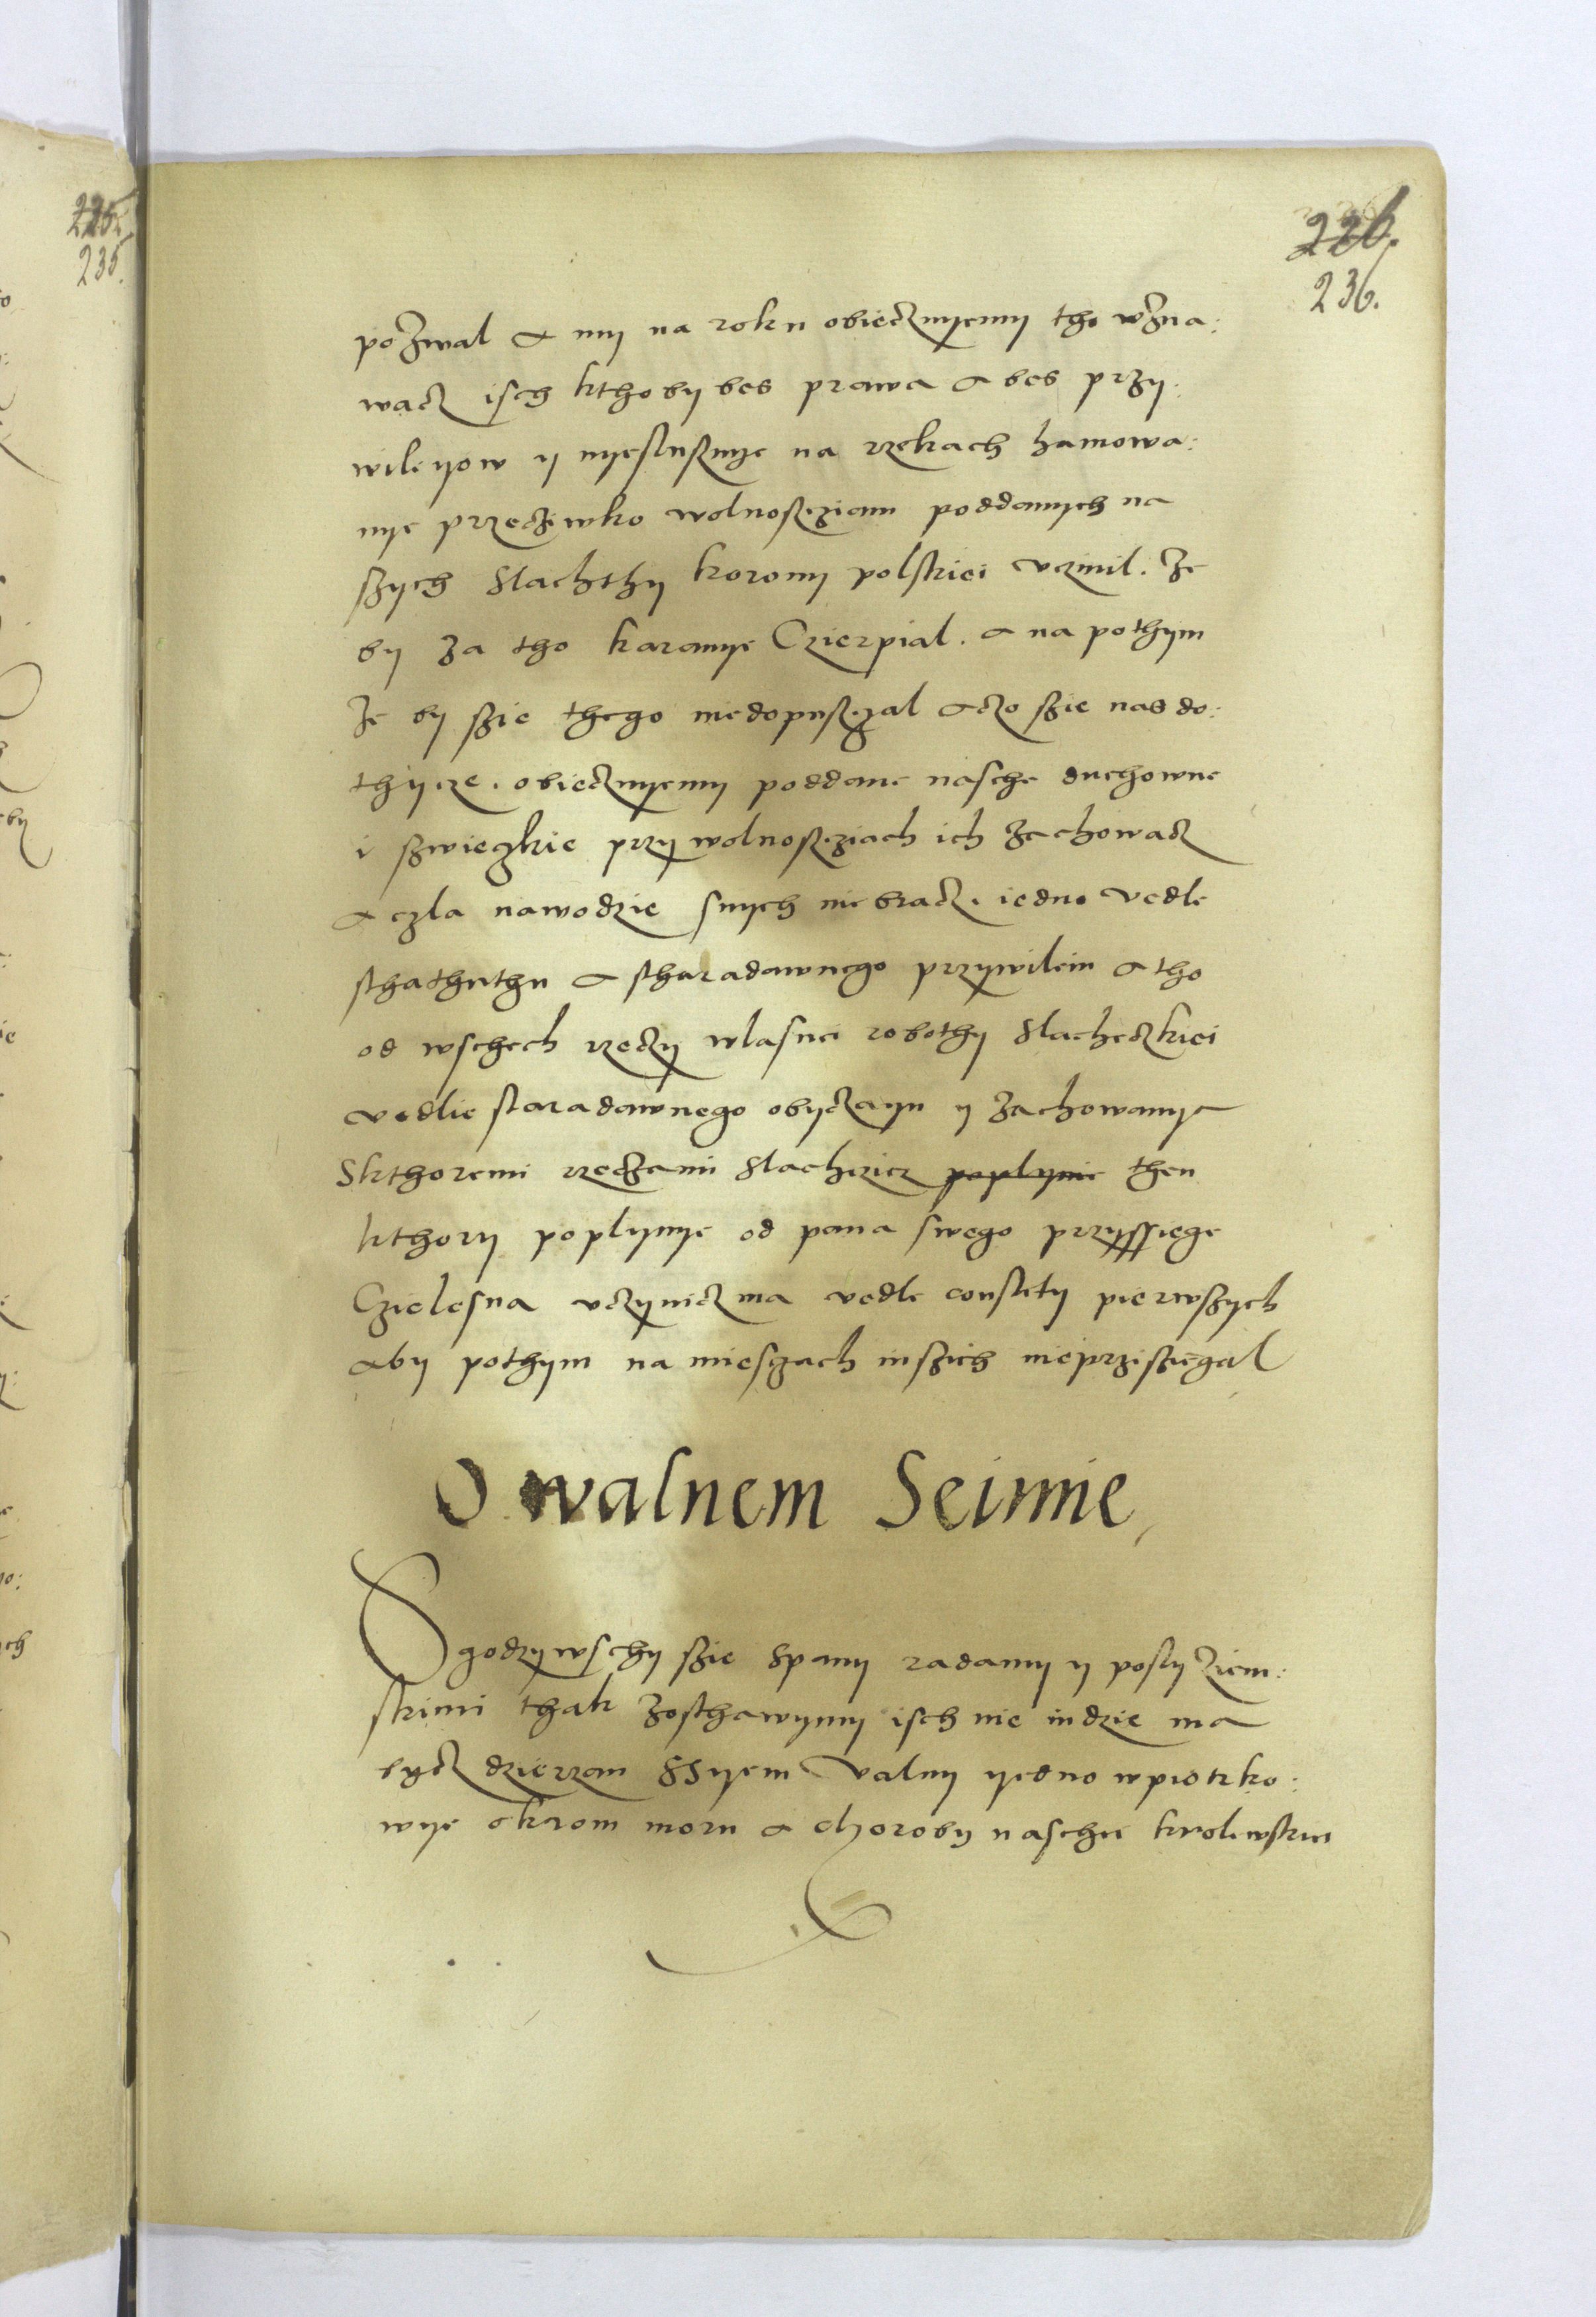 226.
236.
225
235.
pozwal a my na roku obieczuyemy tho wzna:
wacz isch kthoby bes prawa a bes przy:
wileyow y nyeslusznye na rzekach hamowa:
nye przecziwko wolnoscziam poddanych na
szych slachthy korony polskiei uczinil. ze
by za tho karanye Czierpial. a na pothym
ze by szie thego niedopusczal a czo szie nas do:
thycze. obieczuyemy poddane nasche duchowne
i szwieczkie przy wolnoscziach ich zachowacz
a czla nawodzie snych nie bracz. iedno vedle
sthathuthu a stharadawnego przywileiu a tho
od wschech rzeczy wlasnei robothy slacheczkiei
vedlie staradawnego obyczayu y zachowanya
Skthoremi rzeczami slachczicz poplynie then
kthory poplynye od pana swego przyssiege
Czielesna uczynicz ma vedle constety pierwszych
aby pothym na miesczach inszich nieprzisziegal
O walnem Seimie
Sgodzywschy szie spany radamy y posly ziem:
skimi thak zosthawyemy isch nie indzie ma
bycz dzierzan SSyem valny yedno wpiotrko:
wye okrom moru a choroby naschei krolewskiei